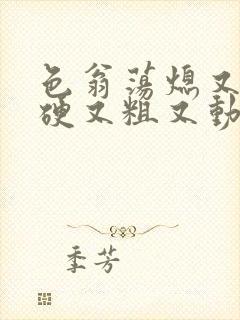 色翁荡熄又
硬又粗又動
季芳